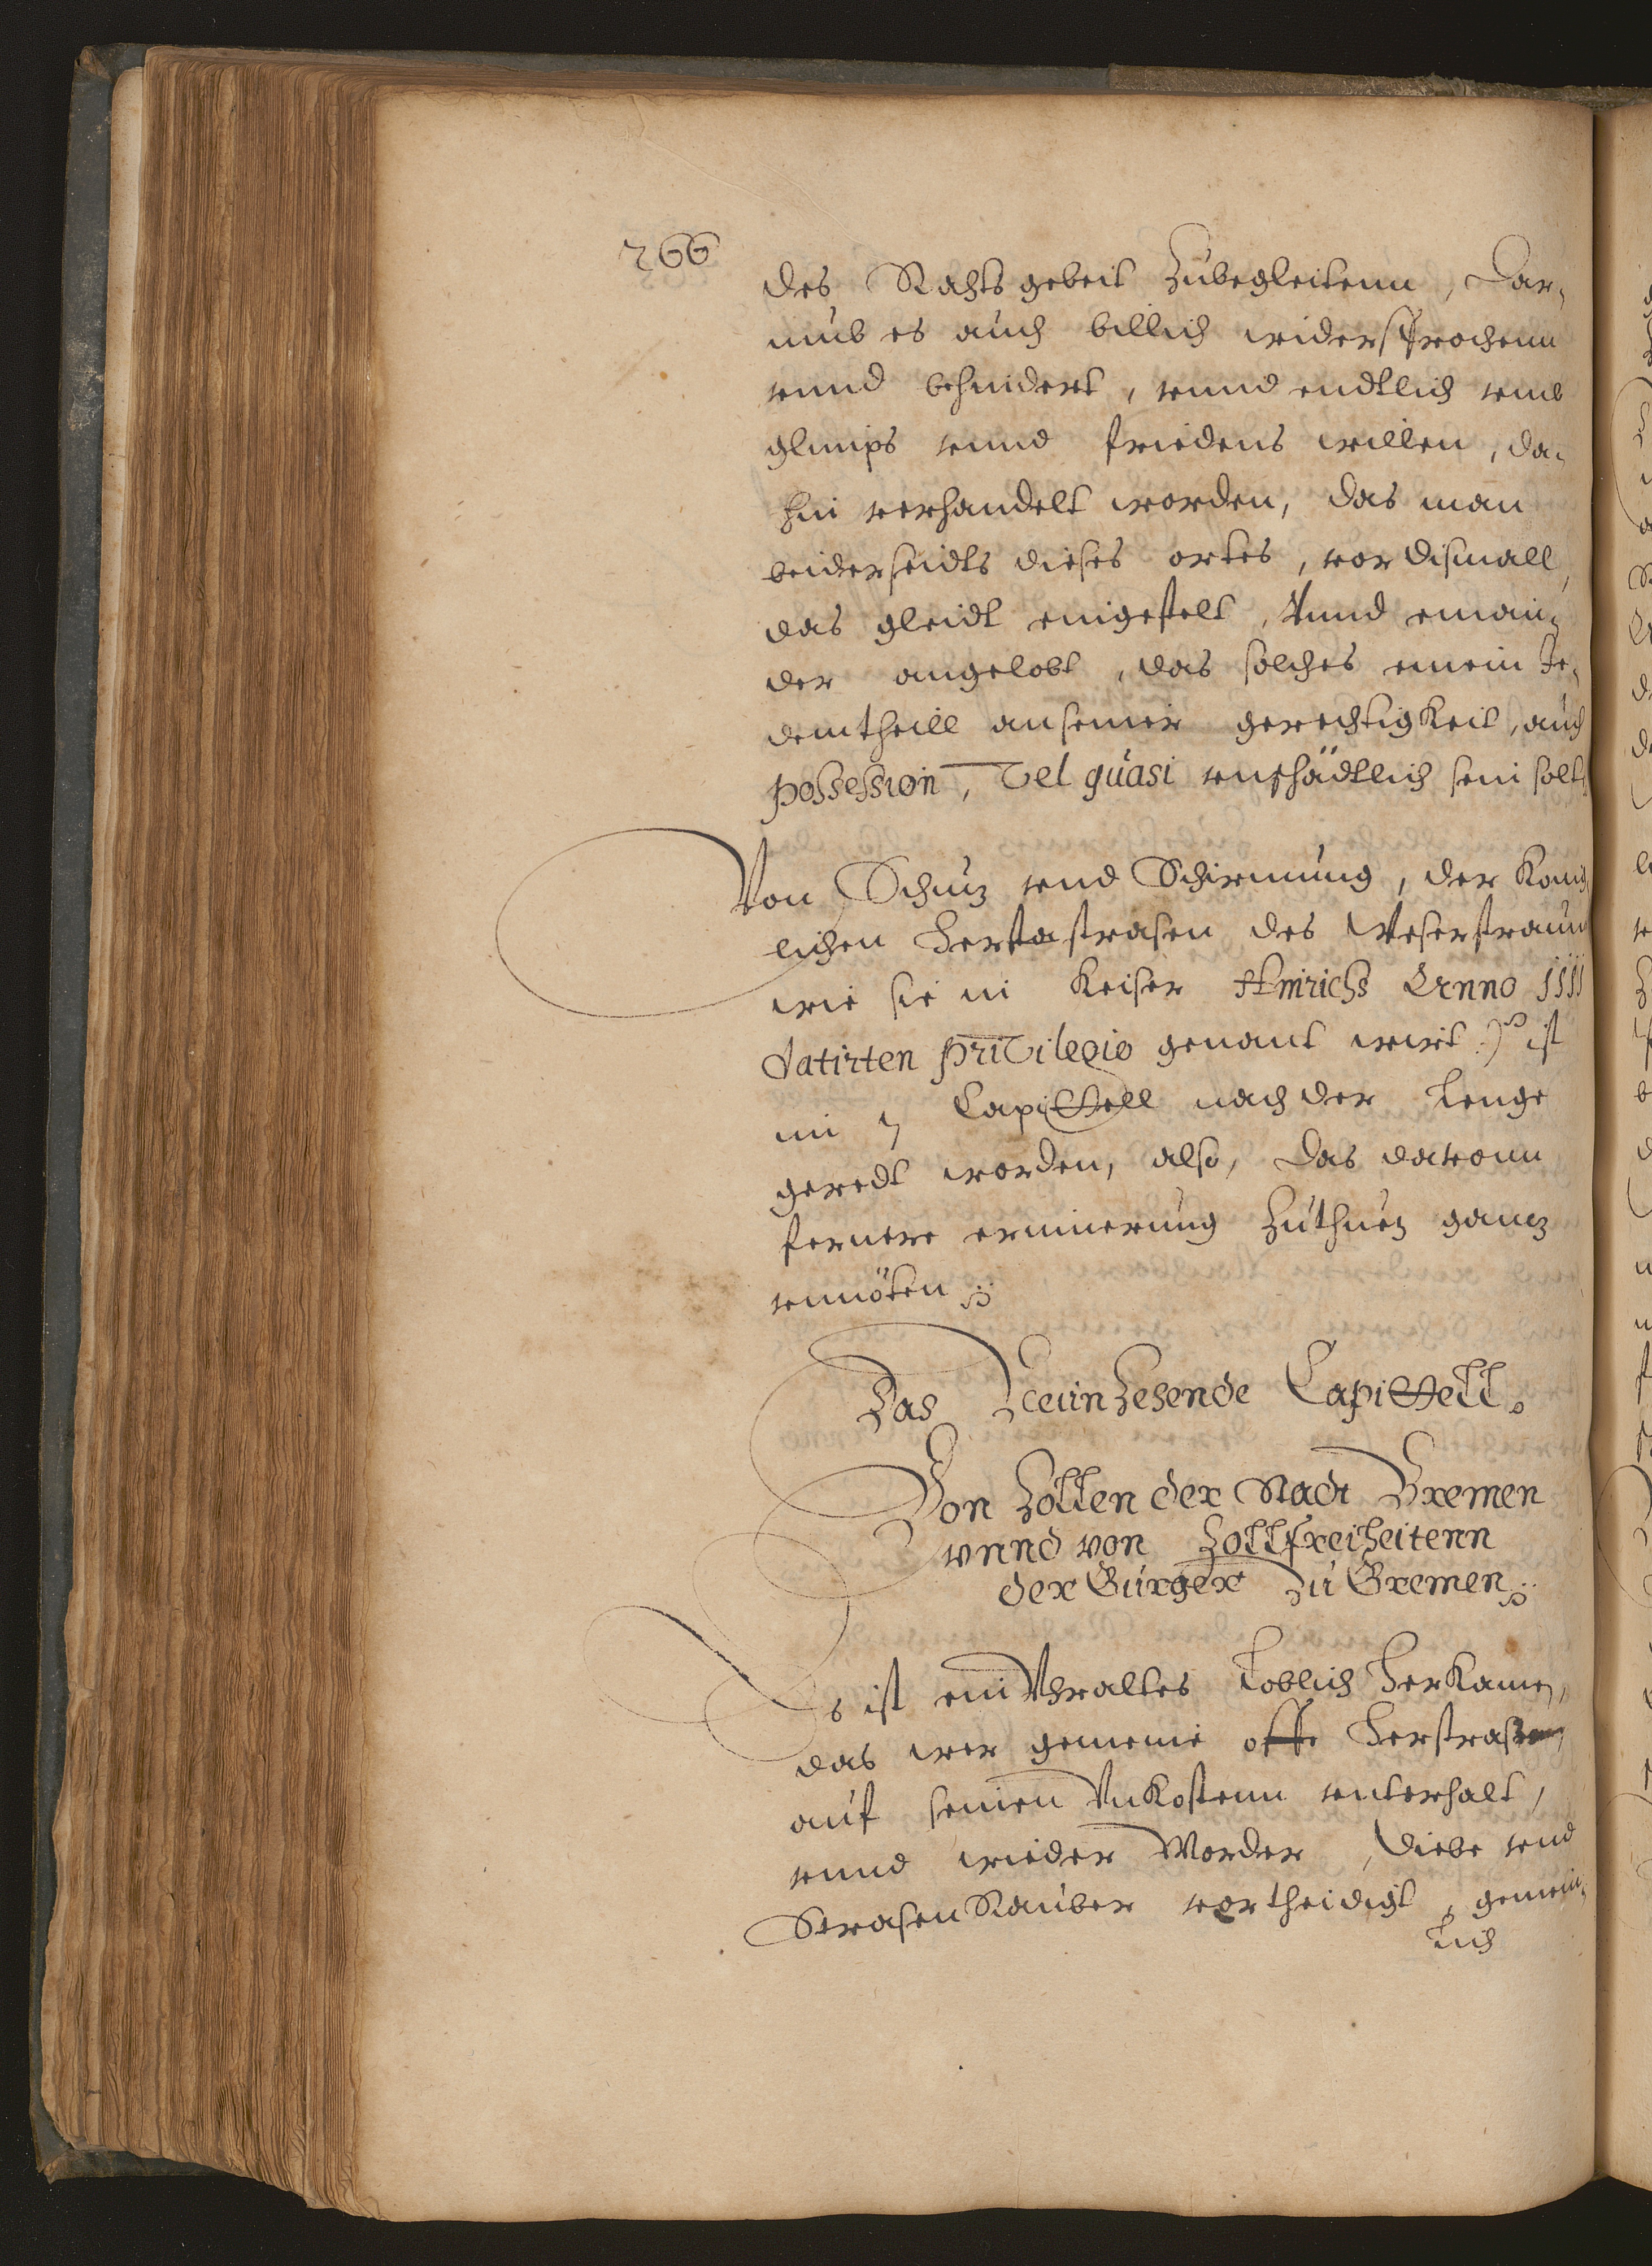 266
des Rahts gebeit zubegleitenn, Dar-
umb es auch billich widersprochenn
vnnd behindert, vnnd endtlich vmb
glimps vnnd friedens willen, da-
hin verhandelt worden, das man
beiderseidts dieses ortes, vor dismall,
das gleidt eingestelt, Vnnd einan-
der angelobt, das solches einem Je-
demtheill an seiner gerechtigkeit, auch
possession, Vel quasi vnschädtlich sein solt
Von Schutz vnd Schirmung, der König
lichen Herstrasen des Weserstraum
wie sie in Keiser Hinrichs Anno 1111
datirten privilegio genant wirt :) ist
im 7 Capittell nach der Lenge
geredt worden, also, das davonn
fernere erinnerung zuthuen gantz
vnnöten
Das Neunzehende Capittell.
Von Zöllen der Stadt Bremen
vnnd von Zollfreiheitenn
der Bürger zu Bremen
Es ist ein Vhraltes Loblich Herkamen,
das wer gemeine offe Herstrassen
auf seinen Vnkostenn vnterhalt,
vnnd wieder Morder, Diebe vnd
Strasen Rauber vortheidigt, gemein-
lich